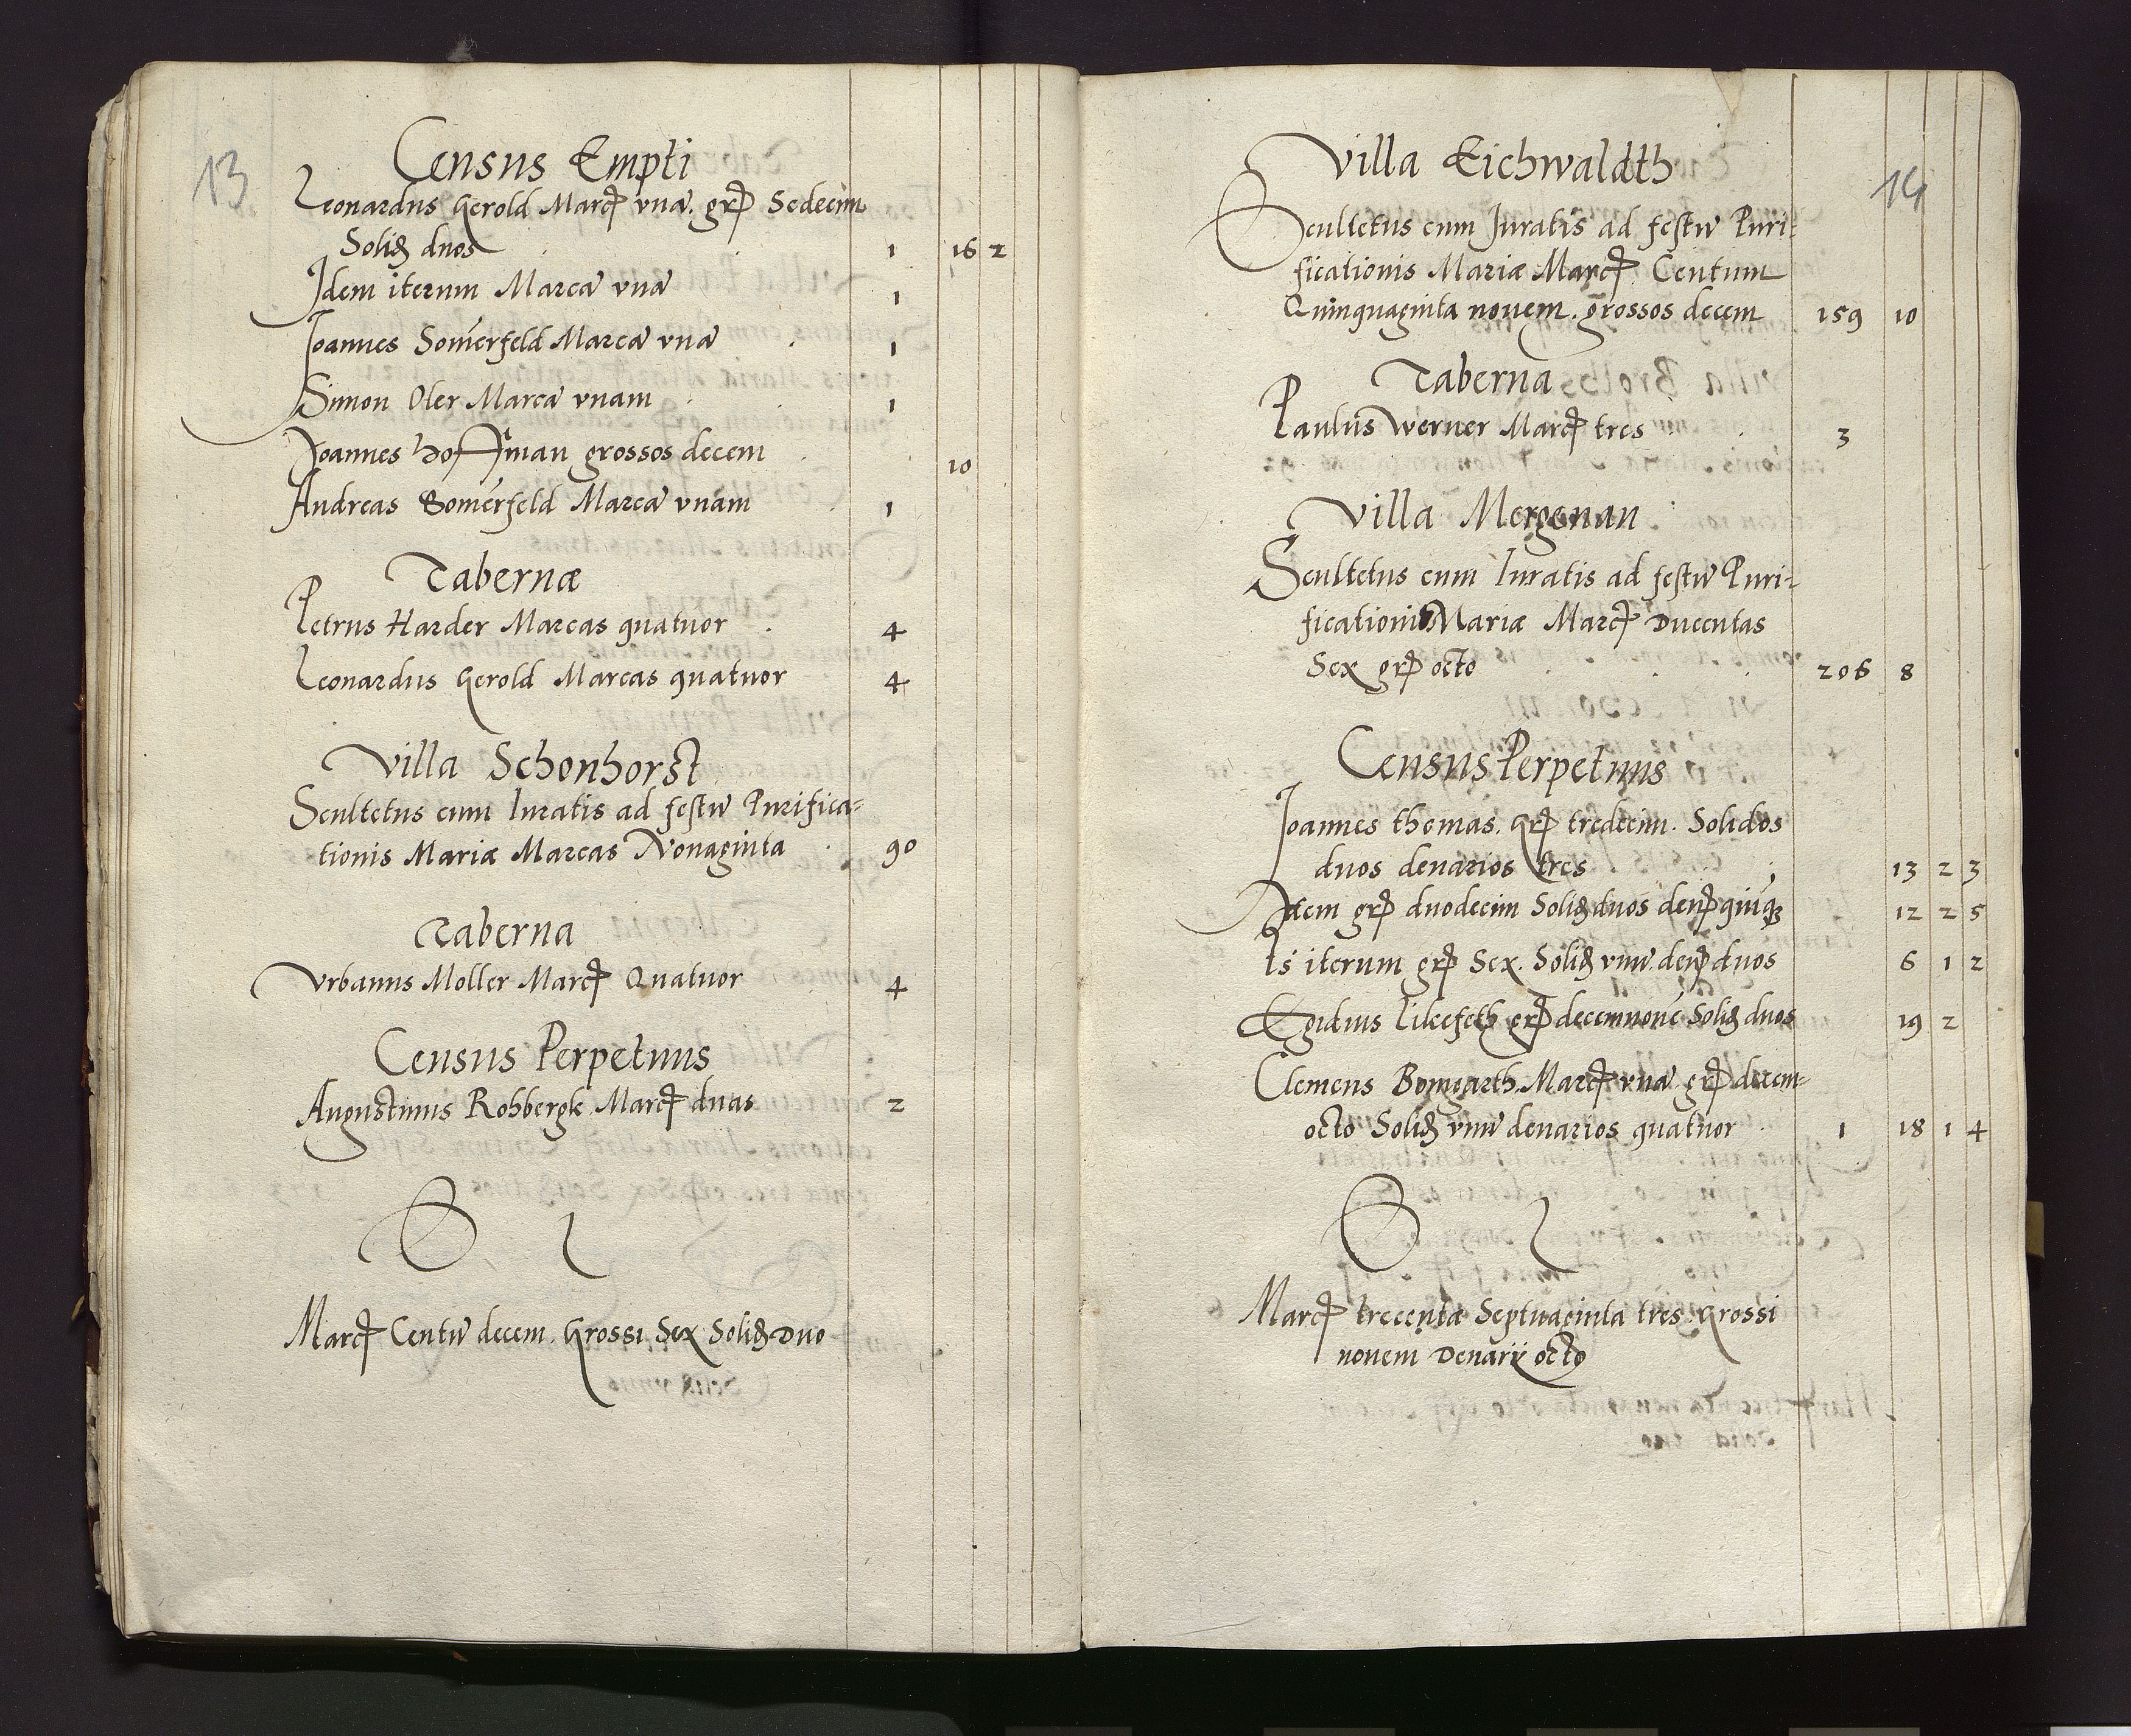 13
Census Empti
Leonardus Gerold Marcꝭ vnã. grꝭ Sedecim
Solidꝭ duos 1 16 2
Idem iterum Marcã vnã 1
Joannes Som̃erfeld Marcã vnã 1
Simon Oler Marcã vnam 1
Joannes Hoffman grossos decem 10
Andreas Som̃erfeld Marcã vnam 1
Tabernæ
Petrus Harder Marcas quatuor 4
Leonardus Gerold Marcas quatuor 4
Villa Schonhorst
Scultetus cum Iuratis ad festũ Purifica=
tionis Mariæ Marcas Nonaginta 90
Taberna
Vrbanus Moller Marcꝭ Quatuor 4
Census Perpetuus
Augustinus Rohbergk Marcꝭ duas 2
S l
Marcꝭ Centũ decem. Grossi Sex Solidꝭ Duo
14
Villa Eichwaldth
Scultetus cum Juratis ad festũ Puri=
ficationis Mariæ Marcꝭ Centum
Quinquaginta nouem. grossos decem 159 10
Taberna
Paulus Werner Marcꝭ tres 3
Villa Mergenau
Scultetus cum Iuratis ad festũ Puri=
ficationis Mariæ Marcꝭ Ducentas
Sex grꝭ octo 206 8
Census Perpetuus
Joannes thomas. Grꝭ tredecim. Solidos
duos denarios tres 13 2 3
Item grꝭ duodecim Solidꝭ duos denꝭ quinqꝫ 12 2 5
Is iterum grꝭ Sex. Solidꝭ vnũ. denꝭ duos 6 1 2
Egidius Lilcefeth grꝭ decemnouẽ Solidꝭ duos 19 2
Clemens Bomgarth. Marcꝭ vnã grꝭ decem=
octo Solidꝭ vnũ denarios quatuor 1 18 1 4
S l
Marcꝭ trecentæ Septuaginta tres. Grossi
nouem Denarij octo